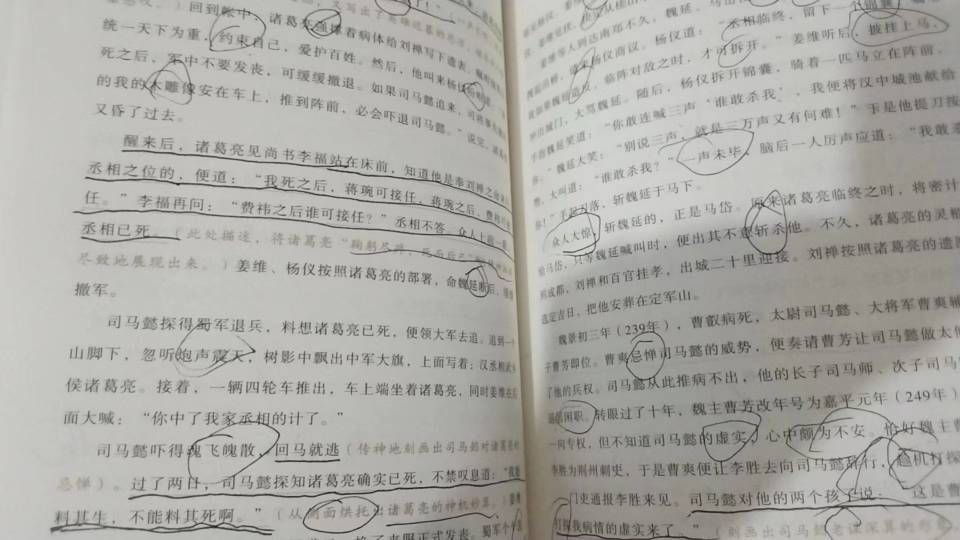 回到帐中，诸葛亮强撑着病体给刘禅写下遗表，
统一天下为重，约束自己，爱护百姓。然后，他叫来杨仪
死之后，军中不要发丧，可缓缓撤退。如果司马懿追来，
的我的木雕像安在车上，推到阵前，必会吓退司马懿。”说完，
又昏了过去。
醒来后，诸葛亮见尚书李福站在床前，知道他是奉刘禅之命
丞相之位的，便道：“我死之后，蒋琬可接任。蒋琬之后，费祎可
任。”李福再问：“费祎之后谁可接任？”丞相不答。众人上前一
丞相已死。（此处描述，将诸葛亮“鞠躬尽瘁，死而后已”
尽致地展现出来。）姜维、杨仪按照诸葛亮的部署，命魏延断后，
撤军。
司马懿探得蜀军退兵，料想诸葛亮已死，便领大军去追。追到一
山脚下，忽听炮声震天，树影中飘出中军大旗，上面写着：汉丞相武乡
侯诸葛亮。接着，一辆四轮车推出，车上端坐着诸葛亮，同时姜维在后
面大喊：“你中了我家丞相的计了。”
司马懿吓得魂飞魄散，回马就逃（传神地刻画出司马懿对诸葛亮的
忌惮）。过了两日，司马懿探知诸葛亮确实已死，不禁叹息道：“我能
料其生，不能料其死啊。”（从侧面烘托出诸葛亮的神机妙算。）
正式发丧。蜀军个个
姜维等人到达南郑不久，魏延、
杨仪商议。杨仪道：“丞相临终，留下一个锦囊，
临阵对敌之时，才可拆开。”姜维听后，披挂上马，
大骂魏延。随后，杨仪拆开锦囊，骑着一匹马立在阵前，
魏延笑道：“你敢连喊三声‘谁敢杀我’，我便将汉中城池献给
魏延大笑：“别说三声，就是三万声又有何难！”于是他提刀按
大叫道：“谁敢杀我？”一声未毕，脑后一人厉声应道：“我敢杀
你！”手起刀落，斩魏延于马下。
众人大惊，斩魏延的，正是马岱。原来诸葛亮临终之时，将密计
给马岱，只等魏延喊叫时，便出其不意斩杀他。不久，诸葛亮的灵柩
到成都，刘禅和百官挂孝，出城二十里迎接。刘禅按照诸葛亮的遗愿
选定吉日，把他安葬在定军山。
魏景初三年（239年），曹叡病死，太尉司马懿、大将军曹爽辅
子曹芳即位。曹爽忌惮司马懿的威势，便奏请曹芳让司马懿做太傅
了他的兵权。司马懿从此推病不出，他的长子司马师、次子司马
闲职。转眼过了十年，魏主曹芳改年号为嘉平元年（249年）
一向专权，但不知道司马懿的虚实，心中颇为不安。恰好魏主曹
李胜为荆州刺史，于是曹爽便让李胜去向司马懿辞行，趁机打探
门吏通报李胜来见。司马懿对他的两个孩子说：“这是曹
打探我病情的虚实来了。”（刻画出司马懿老谋深算的形象